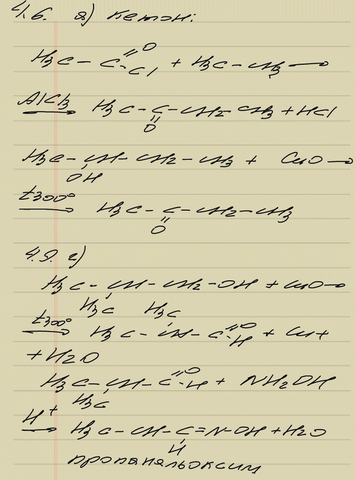 4.6. а) Кетон:
H3C – C =O – Cl + H3C – CH3 →
AlCl3 → H3C – C – CH2 – CH3 + HCl
O
H3C – CH – CH2 – CH3 + CuO →
OH
t300° → H3C – C – CH2 – CH3
O
4.9. г)
H3C – CH – CH2 – OH + CuO →
H3C H3C
t300° → H3C – CH – C =O – H + Cu +
+ H2O
H3C – CH – C =O – H + NH2OH
H3C
H+ → H3C – CH – C = N – OH + H2O
H
пропанальоксим